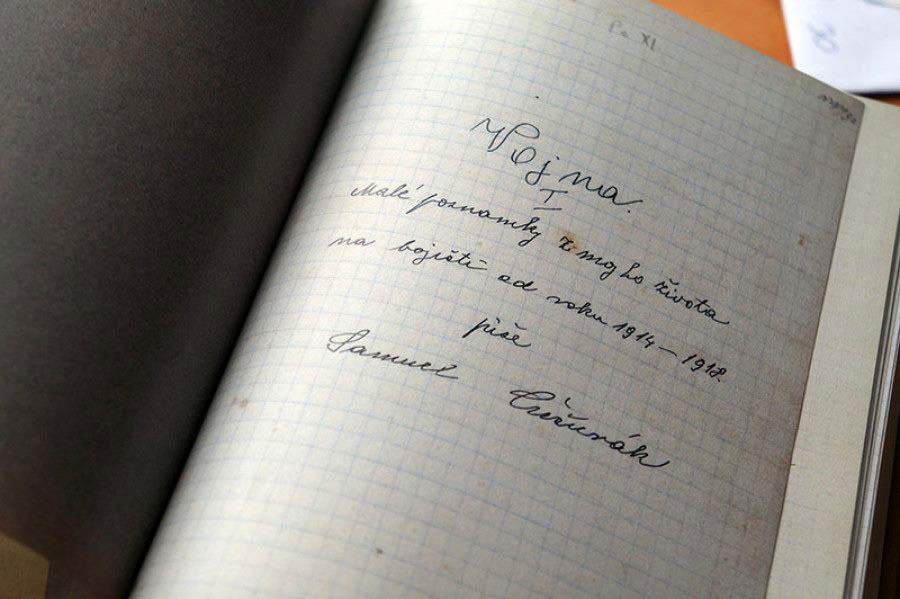 Vojna.
I
Malé poznamky z mojho života
na bojišti od roku 1914–1918.
piše
Samuel Čižurák
30